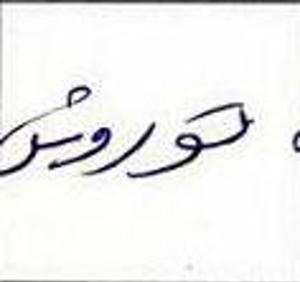 تو روش